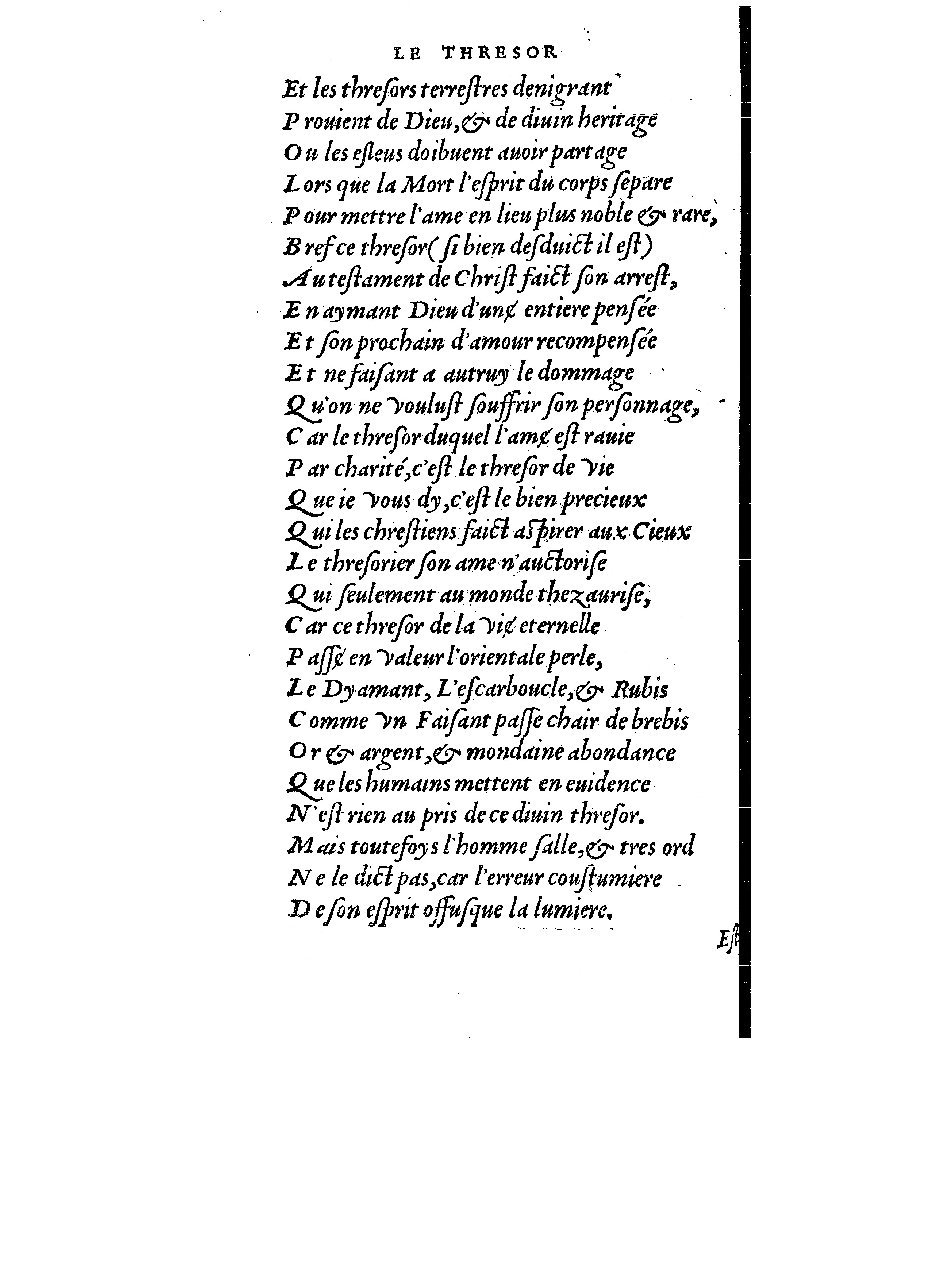 LE THRESOR
Et les threſors terreſtres denigrant
Prouient de Dieu, & de diuin heritage
Ou les eſleus doibuent auoir partage
Lors que la Mort l'eſprit du corps ſepare
Pour mettre l'ame en lieu plus noble & rare,
Bref ce threſor (ſi bien deſduict il eſt)
Au teſtament de Chriſt faict ſon arreſt,
En aymant Dieu d'unɇ entiere penſée
Et ſon prochain d'amour recompenſée
Et ne faiſant a autruy le dommage
Qu'on ne vouluſt ſouffrir ſon perſonnage,
Car le threſor duquel l'amɇ eſt rauie
Par charité, c'eſt le threſor de vie
Que ie vous dy, c'eſt le bien precieux
Qui les chreſtiens faict aſpirer aux Cieux
Le threſorier ſon ame n'auctoriſe
Qui ſeulement au monde thezauriſe,
Car ce threſor de la viɇ eternelle
Paſſɇ en valeur l'orientale perle,
Le Dyamant, L'eſcarboucle, & Rubis
Comme vn Faiſant paſſe chair de brebis
Or & argent, & mondaine abondance
Que les humains mettent en euidence
N'eſt rien au pris de ce diuin threſor.
Mais toutefoys l'homme ſalle, & tres ord
Ne le dict pas, car l'erreur couſtumiere
De ſon eſprit offuſque la lumiere.
Eſt